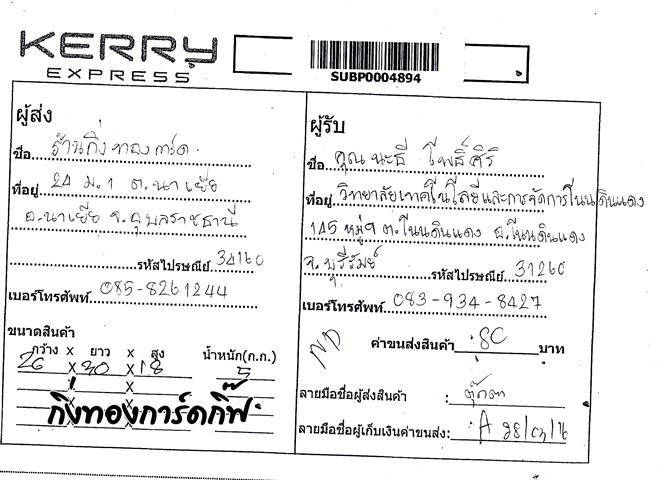 KERRY
EXPRESS
SUBP0004894
ผู้ส่ง
ชื่อ ร้านกิ่งทองการ์ด
ที่อยู่ 24 ม.1 ต.นาเยีย
อ.นาเยีย จ.อุบลราชธานี
รหัสไปรษณีย์ 34160
เบอร์โทรศัพท์ 085-8261244
ขนาดสินค้า
กว้าง x ยาว x สูง น้ำหนัก(ก.ก.)
26 x 30 x 18 5
x x
x x
กิ่งทองการ์ดกิ๊ฟ
ผู้รับ
ชื่อ คุณนะธี โพธิ์ศิริ
ที่อยู่ วิทยาลัยเทคโนโลยีและการจัดการโนนดินแดง
145 หมู่9 ต.โนนดินแดง อ.โนนดินแดง
จ.บุรีรัมย์ รหัสไปรษณีย์ 31260
เบอร์โทรศัพท์ 083-934-8427
ND
ค่าขนส่งสินค้า 80 บาท
ลายมือชื่อผู้ส่งสินค้า : ตุ๊กตา
ลายมือชื่อผู้เก็บเงินค่าขนส่ง: A 28/03/16